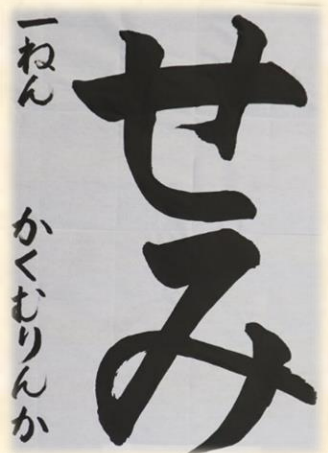 せみ
一ねん かくむりんか